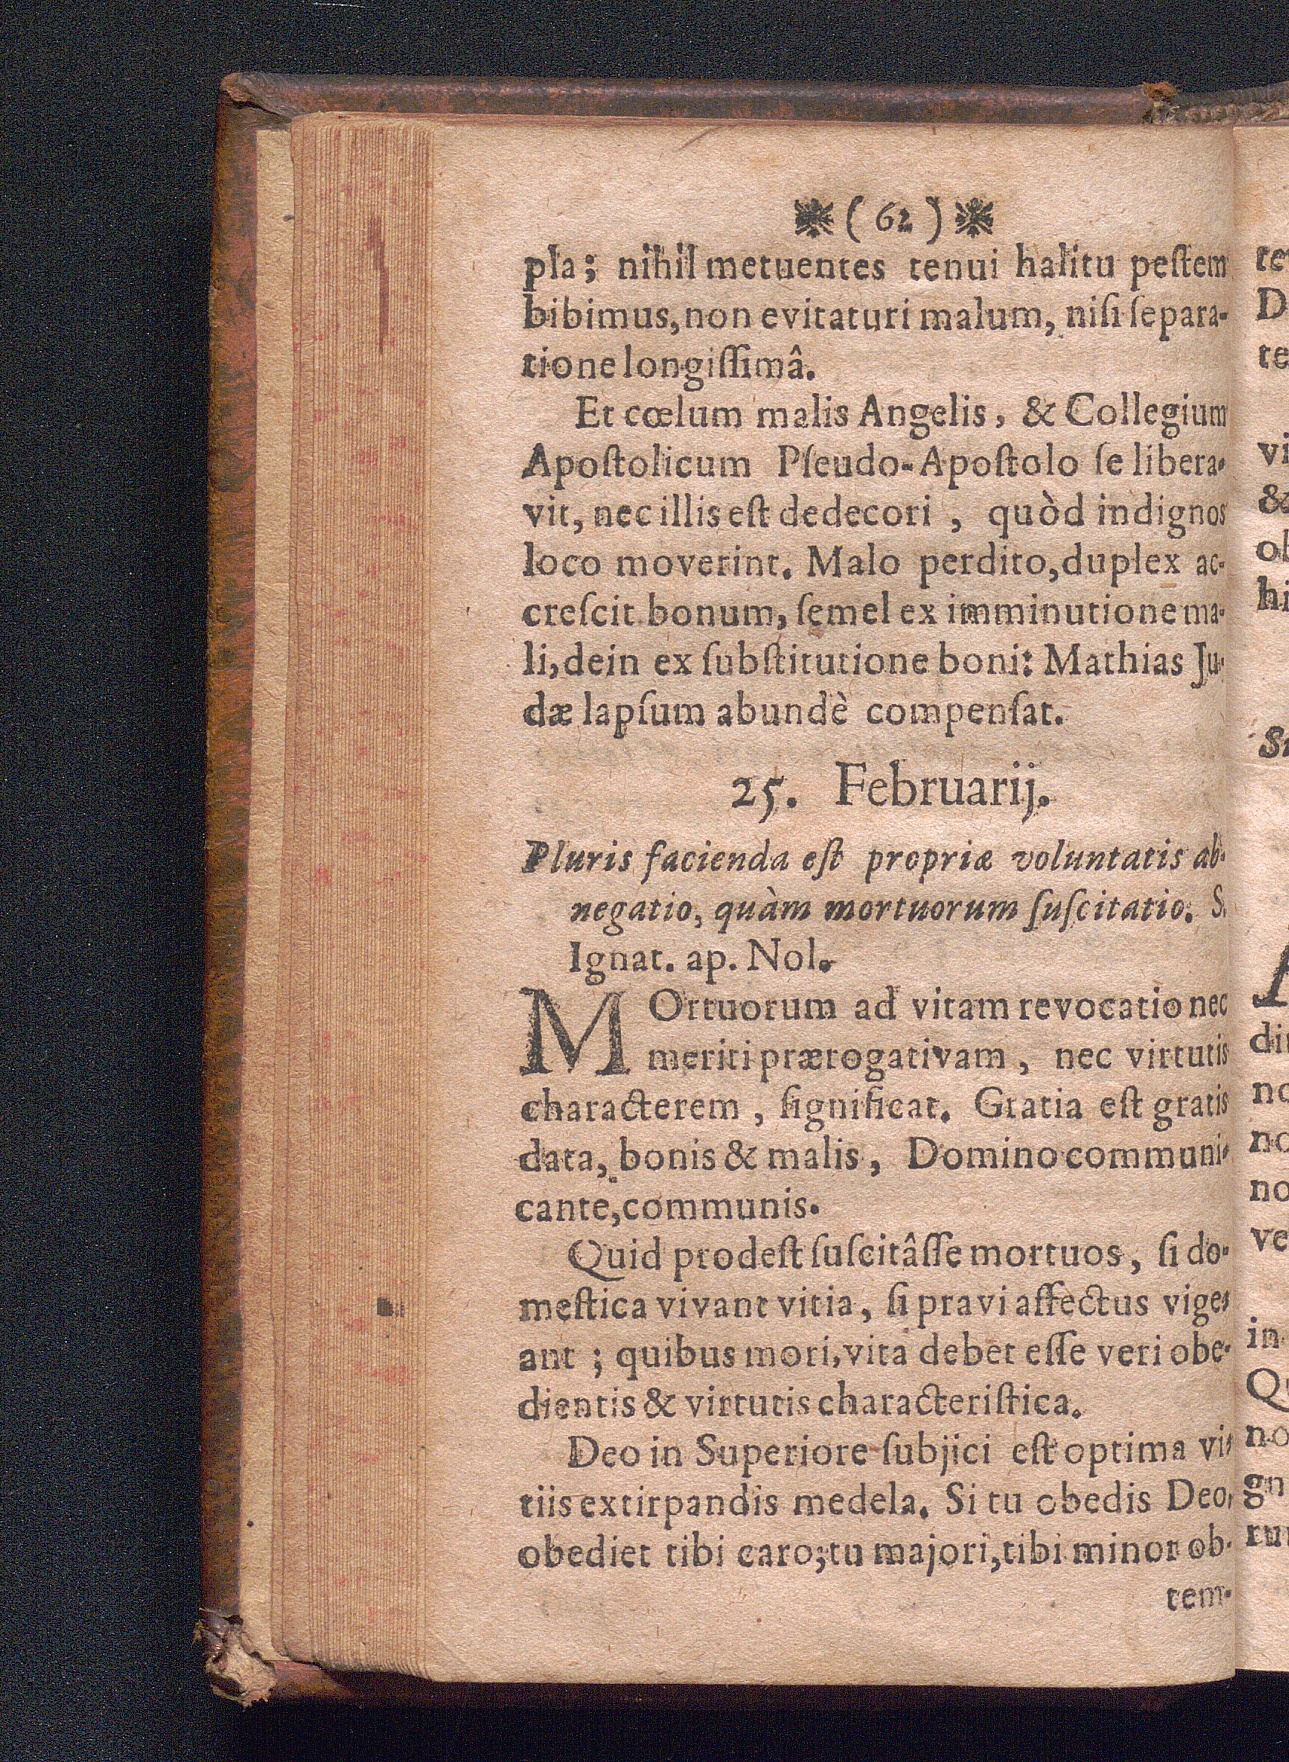 ( 62 )
pla; nihil metuentes tenui halitu peſtem
bibimus, non evitaturi malum, niſi ſepara-
tione longiſſimâ.
Et cœlum malis Angelis, & Collegium
Apoſtolicum Pſeudo-Apoſtolo ſe libera-
vit, nec illis eſt dedecori, quòd indignos
loco moverint. Malo perdito, duplex ac-
creſcit bonum, ſemel ex imminutione ma-
li, dein ex ſubſtitutione boni: Mathias Ju-
dæ lapſum abundè compenſat.
25. Februarij.
Pluris facienda eſt propriæ voluntatis ab-
negatio, quàm mortuorum ſuſcitatio. S.
Ignat. ap. Nol.
MOrtuorum ad vitam revocatio nec
meriti prærogativam, nec virtutis
characterem, ſignificat. Gratia eſt gratis
data, bonis & malis, Domino communi-
cante, communis.
Quid prodeſt ſuſcitâſſe mortuos, ſi do-
meſtica vivant vitia, ſi pravi affectus vige-
ant; quibus mori, vita debet eſſe veri obe-
dientis & virtutis characteriſtica.
Deo in Superiore ſubjici eſt optima vi-
tiis extirpandis medela. Si tu obedis Deo,
obediet tibi caro; tu majori, tibi minor ob-
tem-
te
D
te
vi
&
ob
hi
di
no
no
no
ve
in
Qu
no
gn
ru